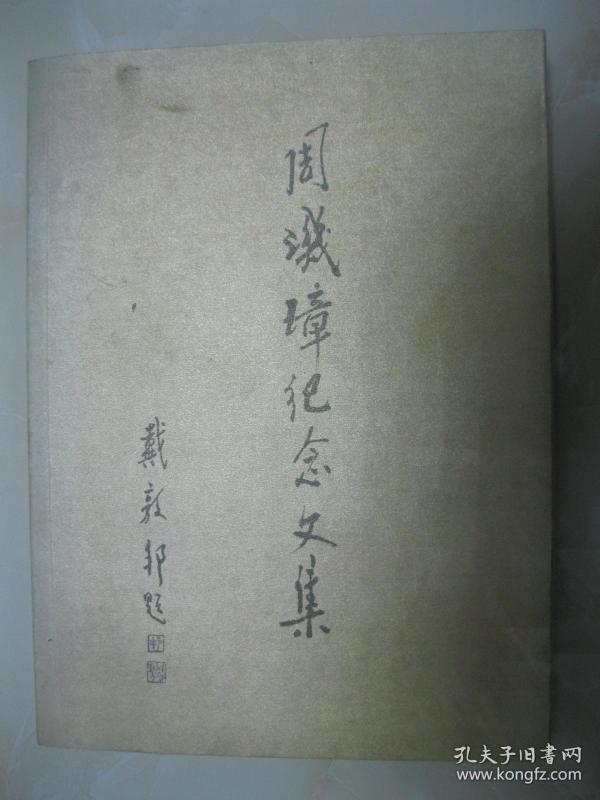 周玑璋纪念文集
戴敦邦题
孔夫子旧书网
www.kongfz.com